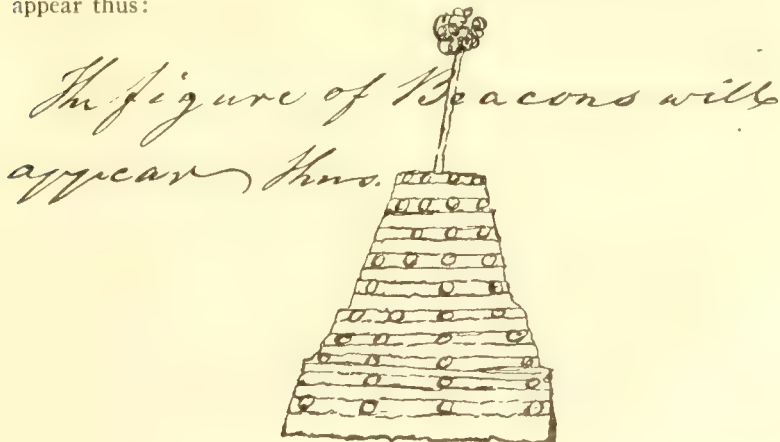 appear thus:
The figure of Beacons will
appear thus.